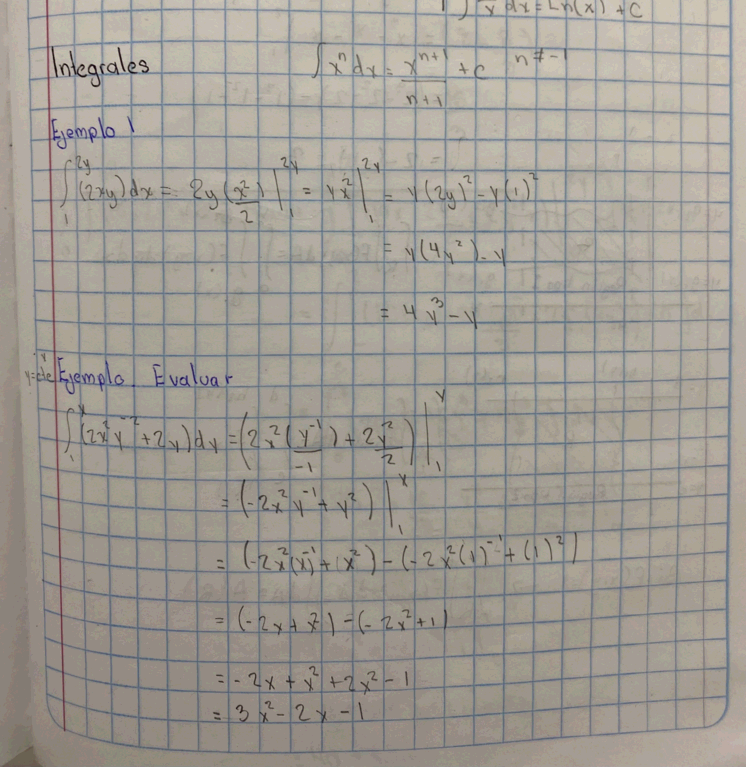 ∫ 1/x dx = Ln(x) + C
Integrales ∫ xⁿ dx = xⁿ⁺¹/(n+1) + C n ≠ -1
Ejemplo 1
∫₁²ʸ (2xy) dx = 2y (x²/2) |₁²ʸ = yx² |₁²ʸ = y(2y)² - y(1)²
= y(4y²) - y
= 4y³ - y
Ejemplo. Evaluar
∫₁ˣ (2x²y⁻² + 2y) dy = (2x² (y⁻¹/-1) + 2y²/2) |₁
= (-2x² y⁻¹ + y²) |₁ˣ
= (-2x²(x)⁻¹ + (x²) - (-2x²(1)⁻¹ + (1)²)
= (-2x + ) - (-2x² + 1)
= -2x + x² + 2x² - 1
= 3x² - 2x - 1